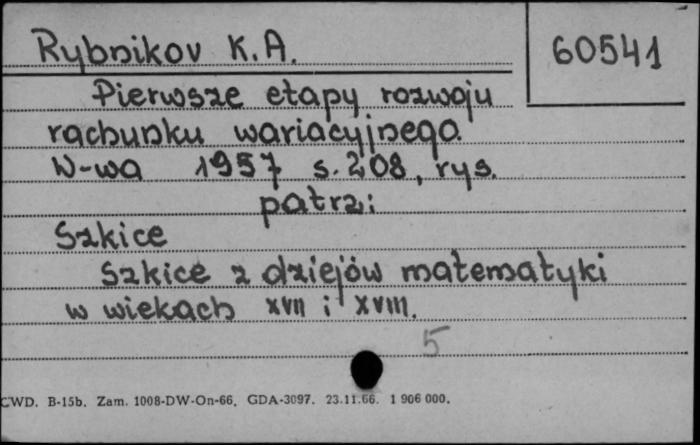 Rybnikov K.A.
60541
Pierwsze etapy rozwoju
rachunku wariacyjnego.
W-wa 1957 s. 208, rys.
patrz:
Szkice
Szkice z dziejów matematyki
w wiekach XVII i XVIII.
5
CWD. B-15b. Zam. 1008-DW-On-66. GDA-3097. 23.11.66. 1 906 000.